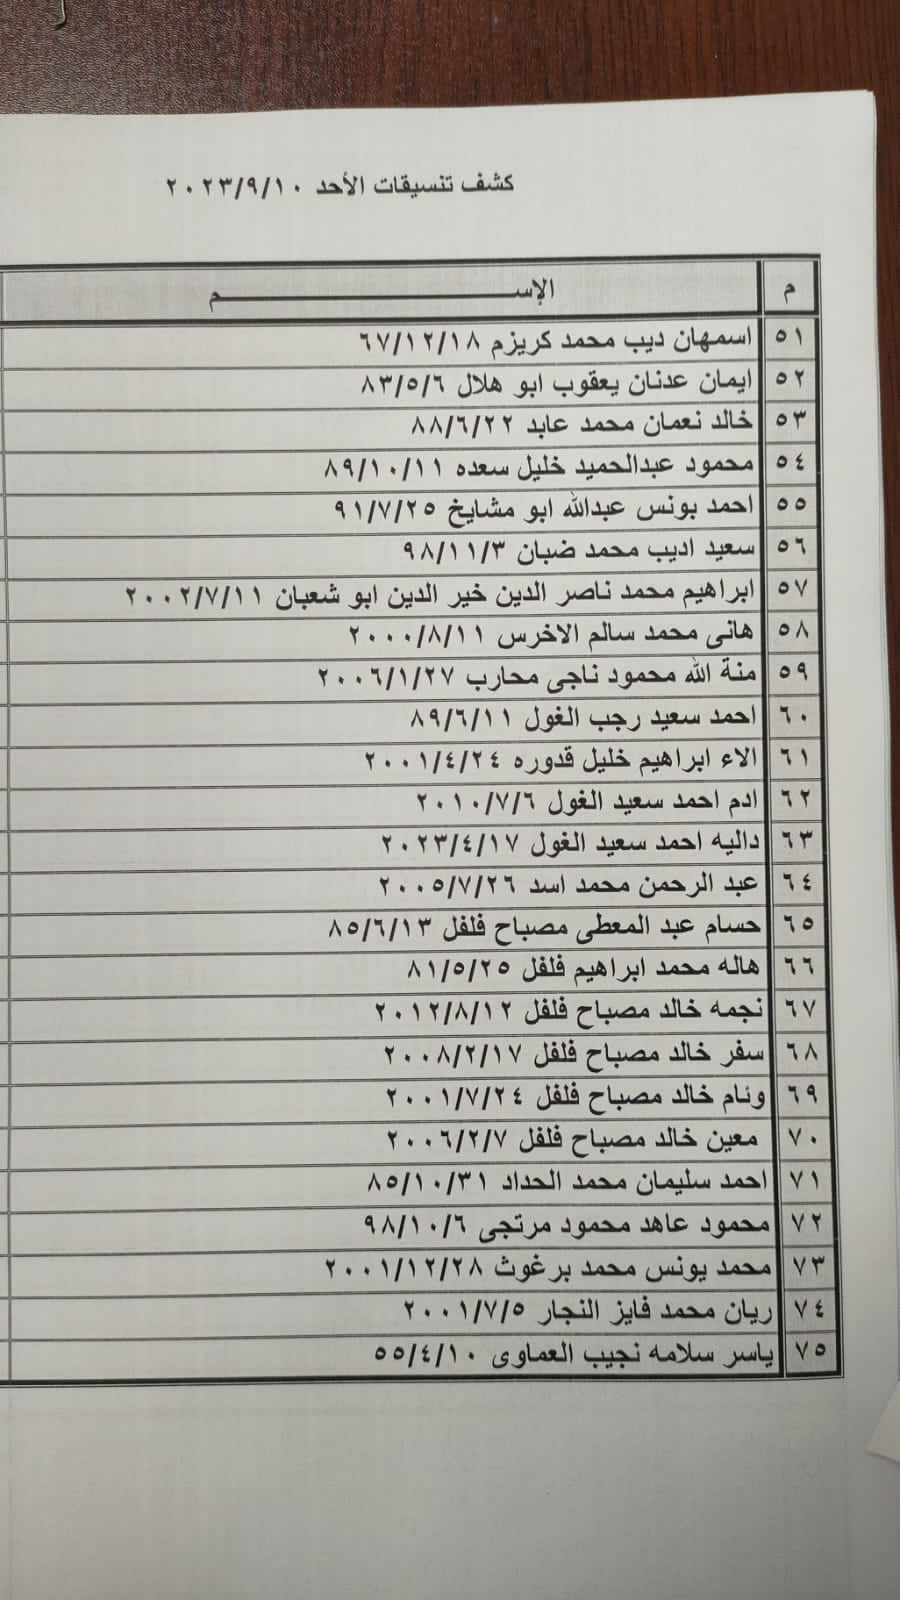 كشف تنسيقات الأحد ٢٠٢٣/٩/١٠
م الإســـــــــــــــــــــــــم
٥١ اسمهان ديب محمد كريزم ٦٧/١٢/١٨
٥٢ ايمان عدنان يعقوب ابو هلال ٨٣/٥/٦
٥٣ خالد نعمان محمد عابد ٨٨/٦/٢٢
٥٤ محمود عبدالحميد خليل سعده ٨٩/١٠/١١
٥٥ احمد بونس عبدالله ابو مشايخ ٩١/٧/٢٥
٥٦ سعيد اديب محمد ضبان ٩٨/١١/٣
٥٧ ابراهيم محمد ناصر الدين خير الدين ابو شعبان ٢٠٠٢/٧/١١
٥٨ هانى محمد سالم الاخرس ٢٠٠٠/٨/١١
٥٩ منة الله محمود ناجى محارب ٢٠٠٦/١/٢٧
٦٠ احمد سعيد رجب الغول ٨٩/٦/١١
٦١ الاء ابراهيم خليل قدوره ٢٠٠١/٤/٢٤
٦٢ ادم احمد سعيد الغول ٢٠١٠/٧/٦
٦٣ داليه احمد سعيد الغول ٢٠٢٣/٤/١٧
٦٤ عبد الرحمن محمد اسد ٢٠٠٥/٧/٢٦
٦٥ حسام عبد المعطى مصباح فلفل ٨٥/٦/١٣
٦٦ هاله محمد ابراهيم فلفل ٨١/٥/٢٥
٦٧ نجمه خالد مصباح فلفل ٢٠١٢/٨/١٢
٦٨ سفر خالد مصباح فلفل ٢٠٠٨/٢/١٧
٦٩ ونام خالد مصباح فلفل ٢٠٠١/٧/٢٤
٧٠ معين خالد مصباح فلفل ٢٠٠٦/٢/٧
٧١ احمد سليمان محمد الحداد ٨٥/١٠/٣١
٧٢ محمود عاهد محمود مرتجى ٩٨/١٠/٦
٧٣ محمد يونس محمد برغوث ٢٠٠١/١٢/٢٨
٧٤ ريان محمد فايز النجار ٢٠٠١/٧/٥
٧٥ ياسر سلامه نجيب العماوى ٥٥/٤/١٠